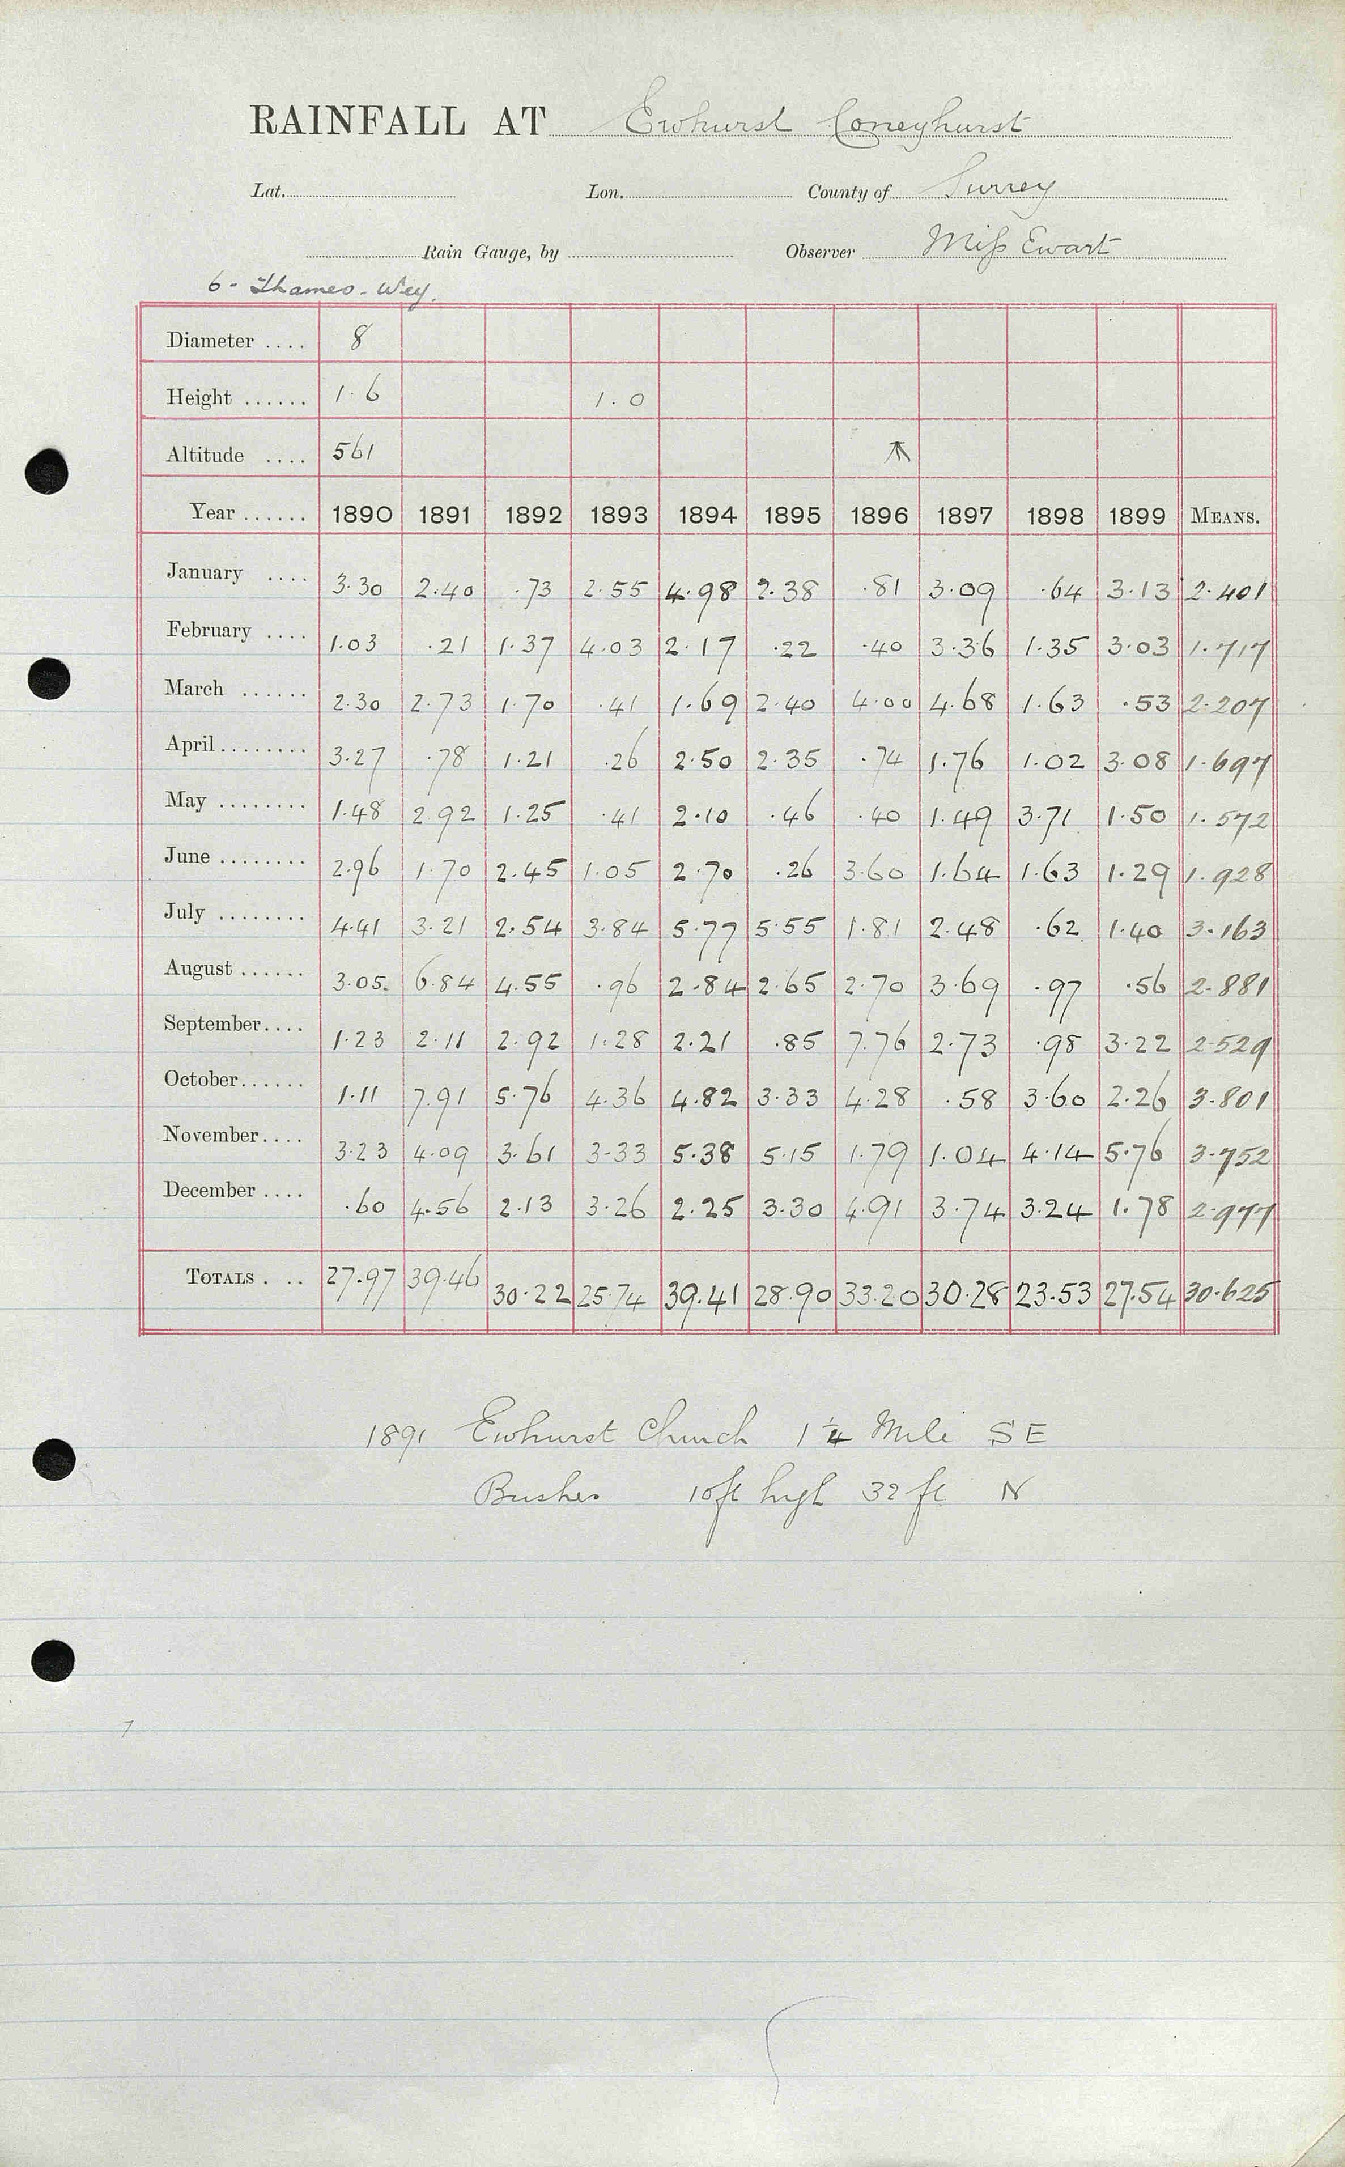 RAINFALL AT Ewhurst Coneyhurst
Lat. Lon. County of Surrey
Rain Gauge, by Observer Miss Ewart
6 - Thames - Wey.
Diameter .... 8
Height ...... 1.6 1.0
Altitude .... 561
Year ...... 1890 1891 1892 1893 1894 1895 1896 1897 1898 1899 MEANS.
January .... 3.30 2.40 .73 2.55 4.98 2.38 .81 3.09 .64 3.13 2.401
February .... 1.03 .21 1.37 4.03 2.17 .22 .40 3.36 1.35 3.03 1.717
March ...... 2.30 2.73 1.70 .41 1.69 2.40 4.00 4.68 1.63 .53 2.207
April ........ 3.27 .78 1.21 .26 2.50 2.35 .74 1.76 1.02 3.08 1.697
May ........ 1.48 2.92 1.25 .41 2.10 .46 .40 1.49 3.71 1.50 1.572
June ........ 2.96 1.70 2.45 1.05 2.70 .26 3.60 1.64 1.63 1.29 1.928
July ........ 4.41 3.21 2.54 3.84 5.77 5.55 1.81 2.48 .62 1.40 3.163
August ...... 3.05 6.84 4.55 .96 2.84 2.65 2.70 3.69 .97 .56 2.881
September .... 1.23 2.11 2.92 1.28 2.21 .85 7.76 2.73 .98 3.22 2.529
October ...... 1.11 7.91 5.76 4.36 4.82 3.33 4.28 .58 3.60 2.26 3.801
November .... 3.23 4.09 3.61 3.33 5.38 5.15 1.79 1.04 4.14 5.76 3.752
December .... .60 4.56 2.13 3.26 2.25 3.30 4.91 3.74 3.24 1.78 2.977
TOTALS . .. 27.97 39.46 30.22 25.74 39.41 28.90 33.20 30.28 23.53 27.54 30.625
1891 Ewhurst Church 1 1/4 Mile SE
Bushes 10ft high 32 ft N